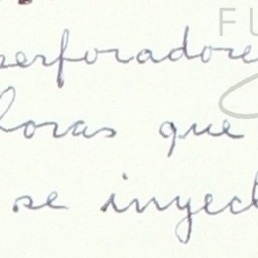 perforadore
horas que
se inyec